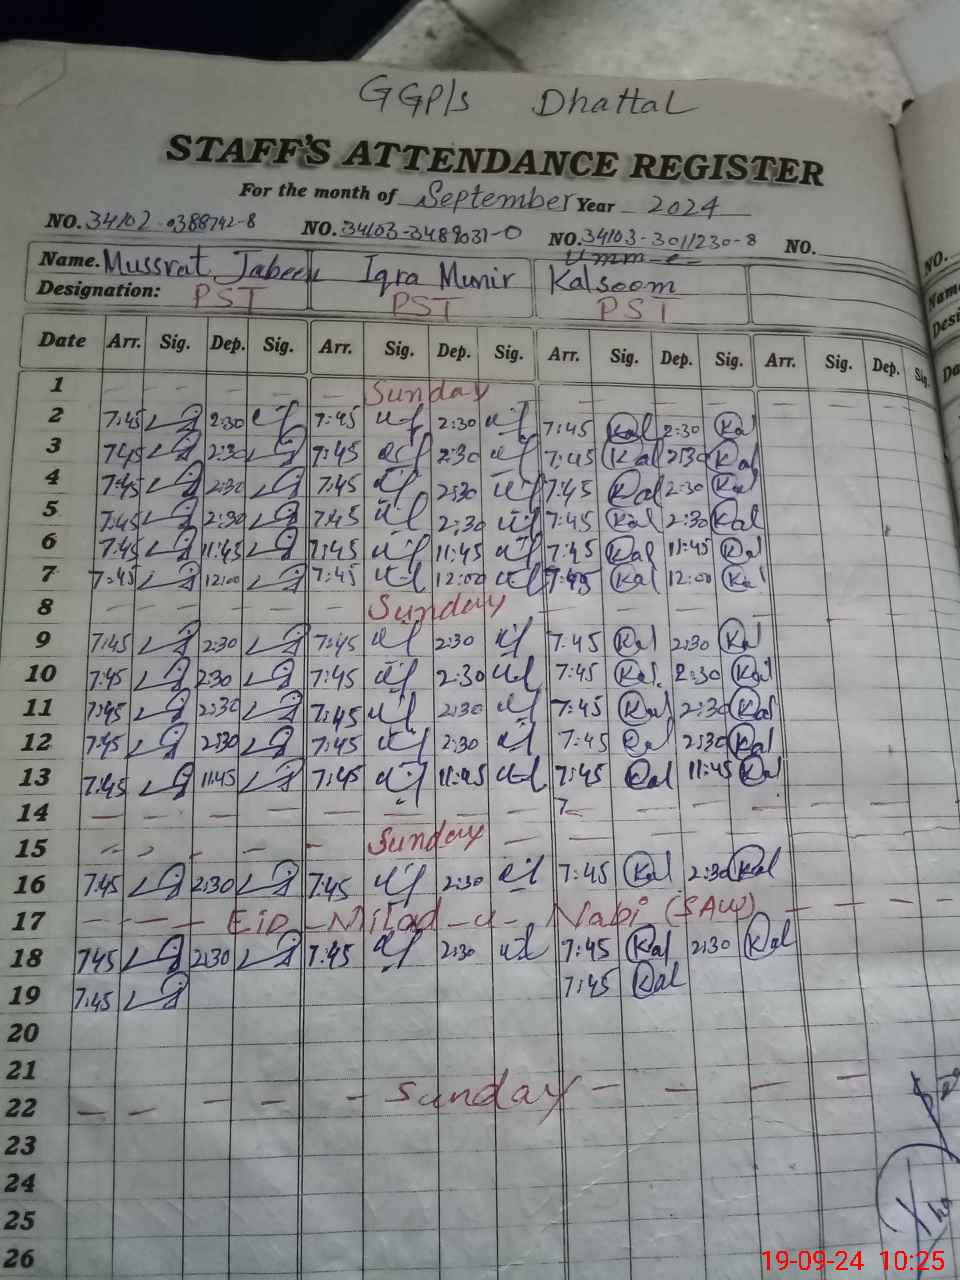 GGP/s Dhattal
STAFF'S ATTENDANCE REGISTER
For the month of September Year 2024
NO. 34102-0388742-8 NO. 34103-3489031-0 NO. 34103-3011230-8 NO.
Name. Mussrat Jabeen Iqra Munir Umm-e-Kalsoom
Designation: PST PST PST
Date Arr. Sig. Dep. Sig. Arr. Sig. Dep. Sig. Arr. Sig. Dep. Sig. Arr. Sig. Dep. Sig.
1 Sunday
2 7:45 2:30 7:45 2:30 7:45 Kal 2:30 Kal
3 7:45 2:30 7:45 2:30 7:45 Kal 2:30 Kal
4 7:45 2:30 7:45 2:30 7:45 Kal 2:30 Kal
5 7:45 2:30 7:45 2:30 7:45 Kal 2:30 Kal
6 7:45 11:45 7:45 11:45 7:45 Kal 11:45 Kal
7 7:45 12:00 7:45 12:00 7:45 Kal 12:00 Kal
8 Sunday
9 7:45 2:30 7:45 2:30 7.45 Kal 2:30 Kal
10 7:45 2:30 7:45 2:30 7:45 Kal 2:30 Kal
11 7:45 2:30 7:45 2:30 7:45 Kal 2:30 Kal
12 7:45 2:30 7:45 2:30 7:45 Kal 2:30 Kal
13 7:45 11:45 7:45 11:45 7:45 Kal 11:45 Kal
14
15 Sunday
16 7:45 2:30 7:45 2:30 7:45 Kal 2:30 Kal
17 Eid-Milad-u-Nabi (SAW)
18 745 2:30 7:45 2:30 7:45 Kal 2:30 Kal
19 7:45 7:45 Kal
20
21
22 Sunday
23
24
25
26
NO.
19-09-24 10:25